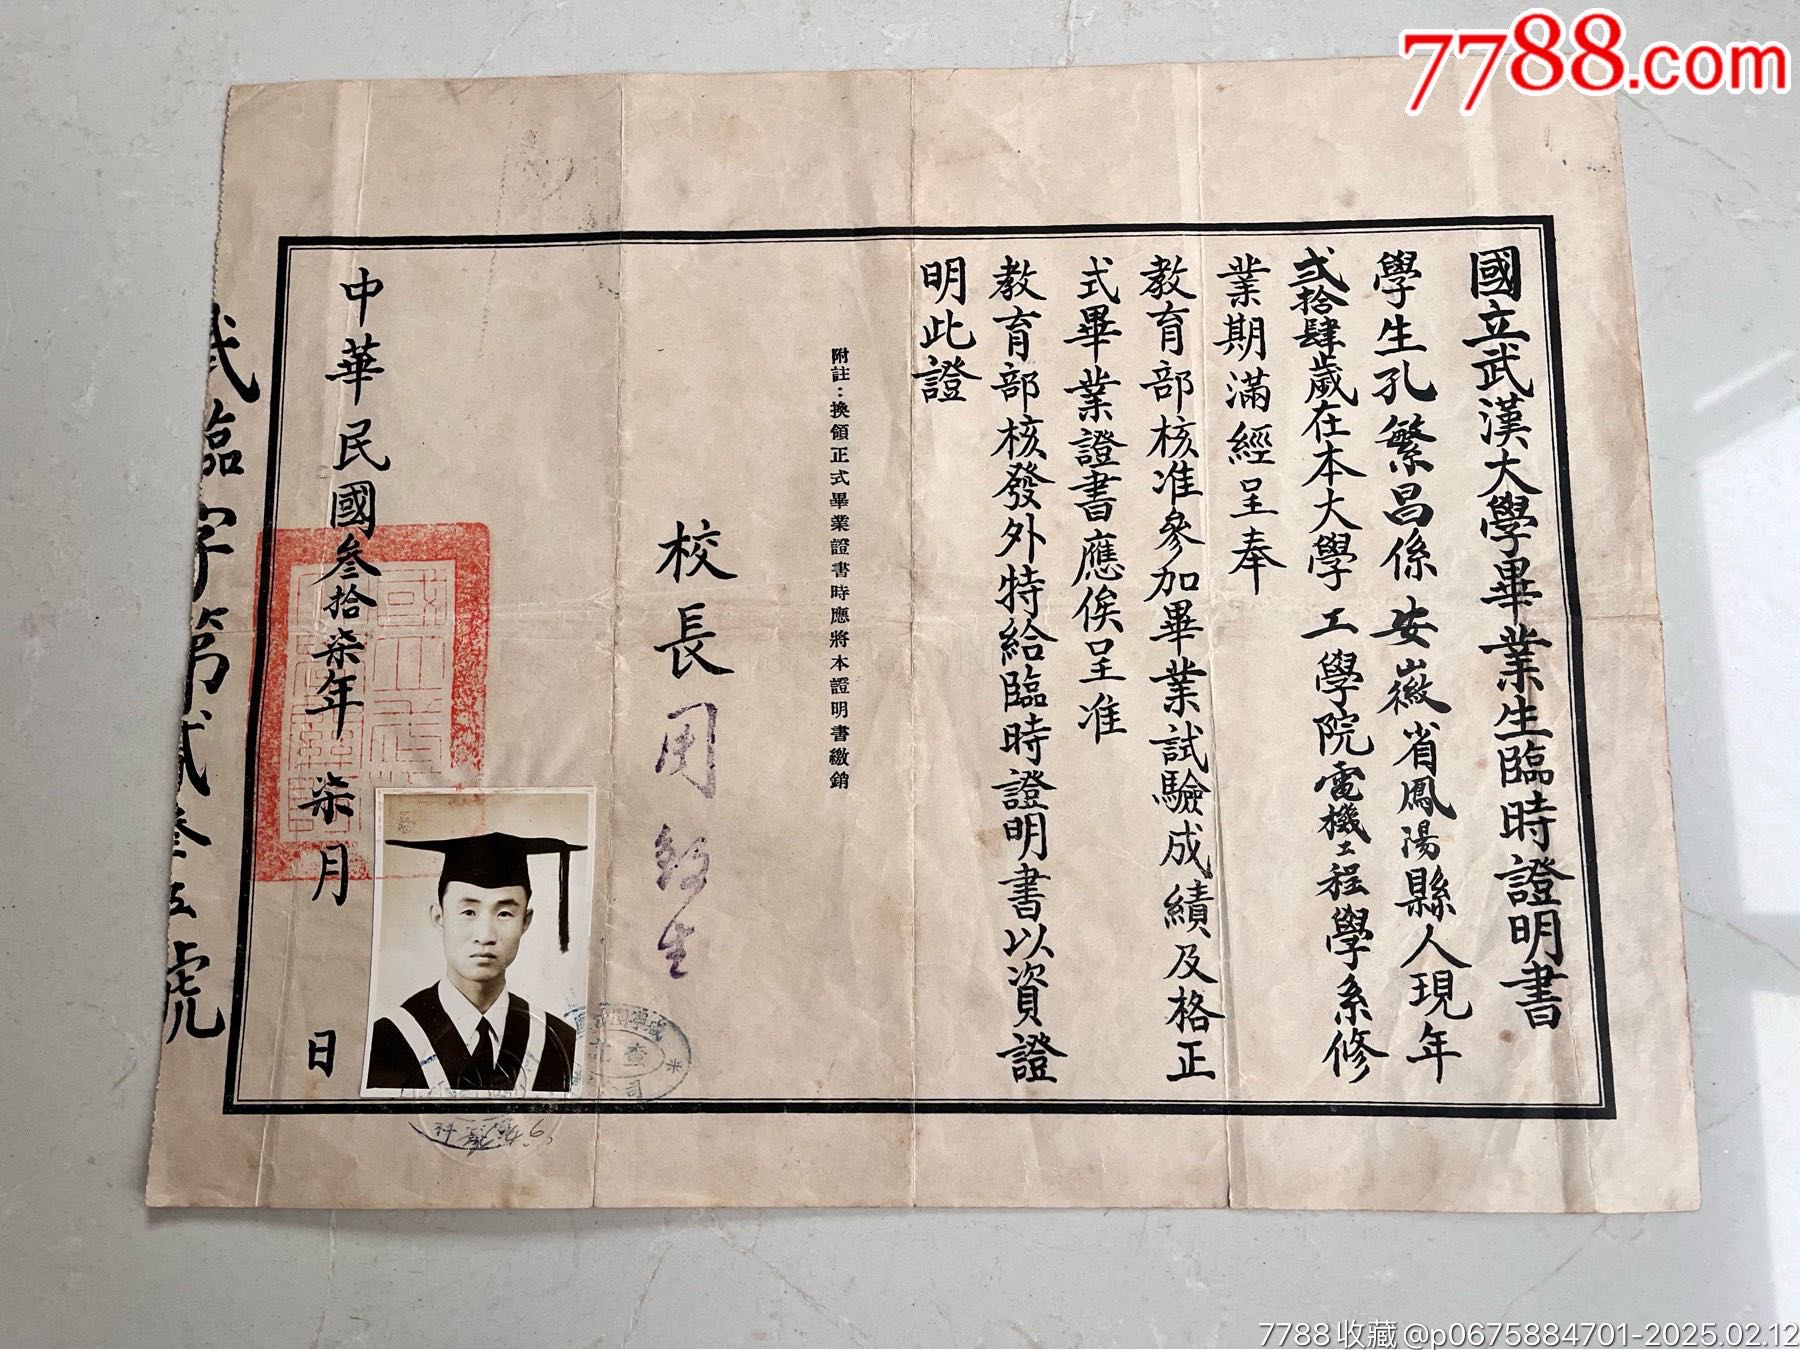 7788.com
國立武漢大學畢業生臨時證明書
學生孔繁昌係安徽省鳳陽縣人現年
貳拾肆歲在本大學工學院電機工程學系修
業期滿經呈奉
教育部核准參加畢業試驗成績及格正
式畢業證書應俟呈准
教育部核發外特給臨時證明書以資證
明此證
附註：換領正式畢業證書時應將本證明書繳銷
校長周鯁生
中華民國叁拾柒年柒月 日
臨字第貳叁五號
7788收藏@p0675884701-2025.02.12